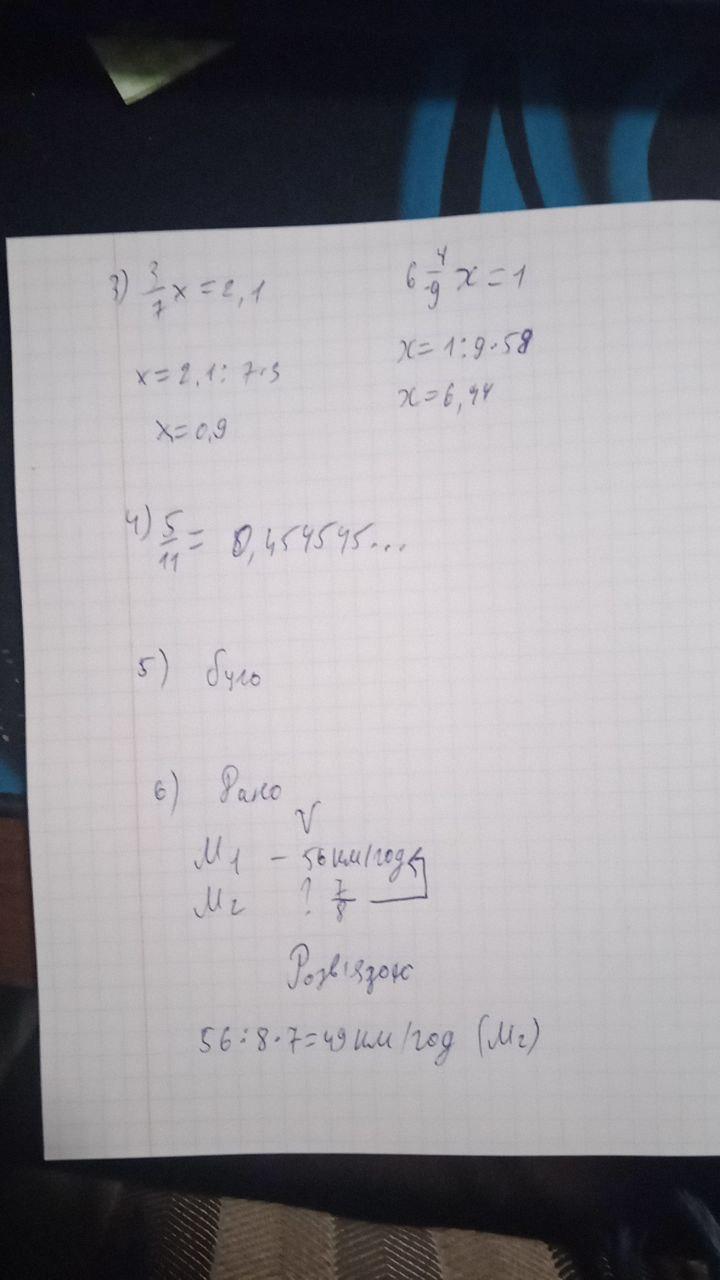 3) 3/7 x = 2,1
x = 2,1 : 7 · 3
x = 0,9
6 4/9 x = 1
x = 1 : 9 · 58
x = 6,44
4) 5/11 = 0,454545...
5) було
6) Дано
V
М1 – 56 км/год
М2 ? 7/8
Розв'язок
56 : 8 · 7 = 49 км/год (М2)